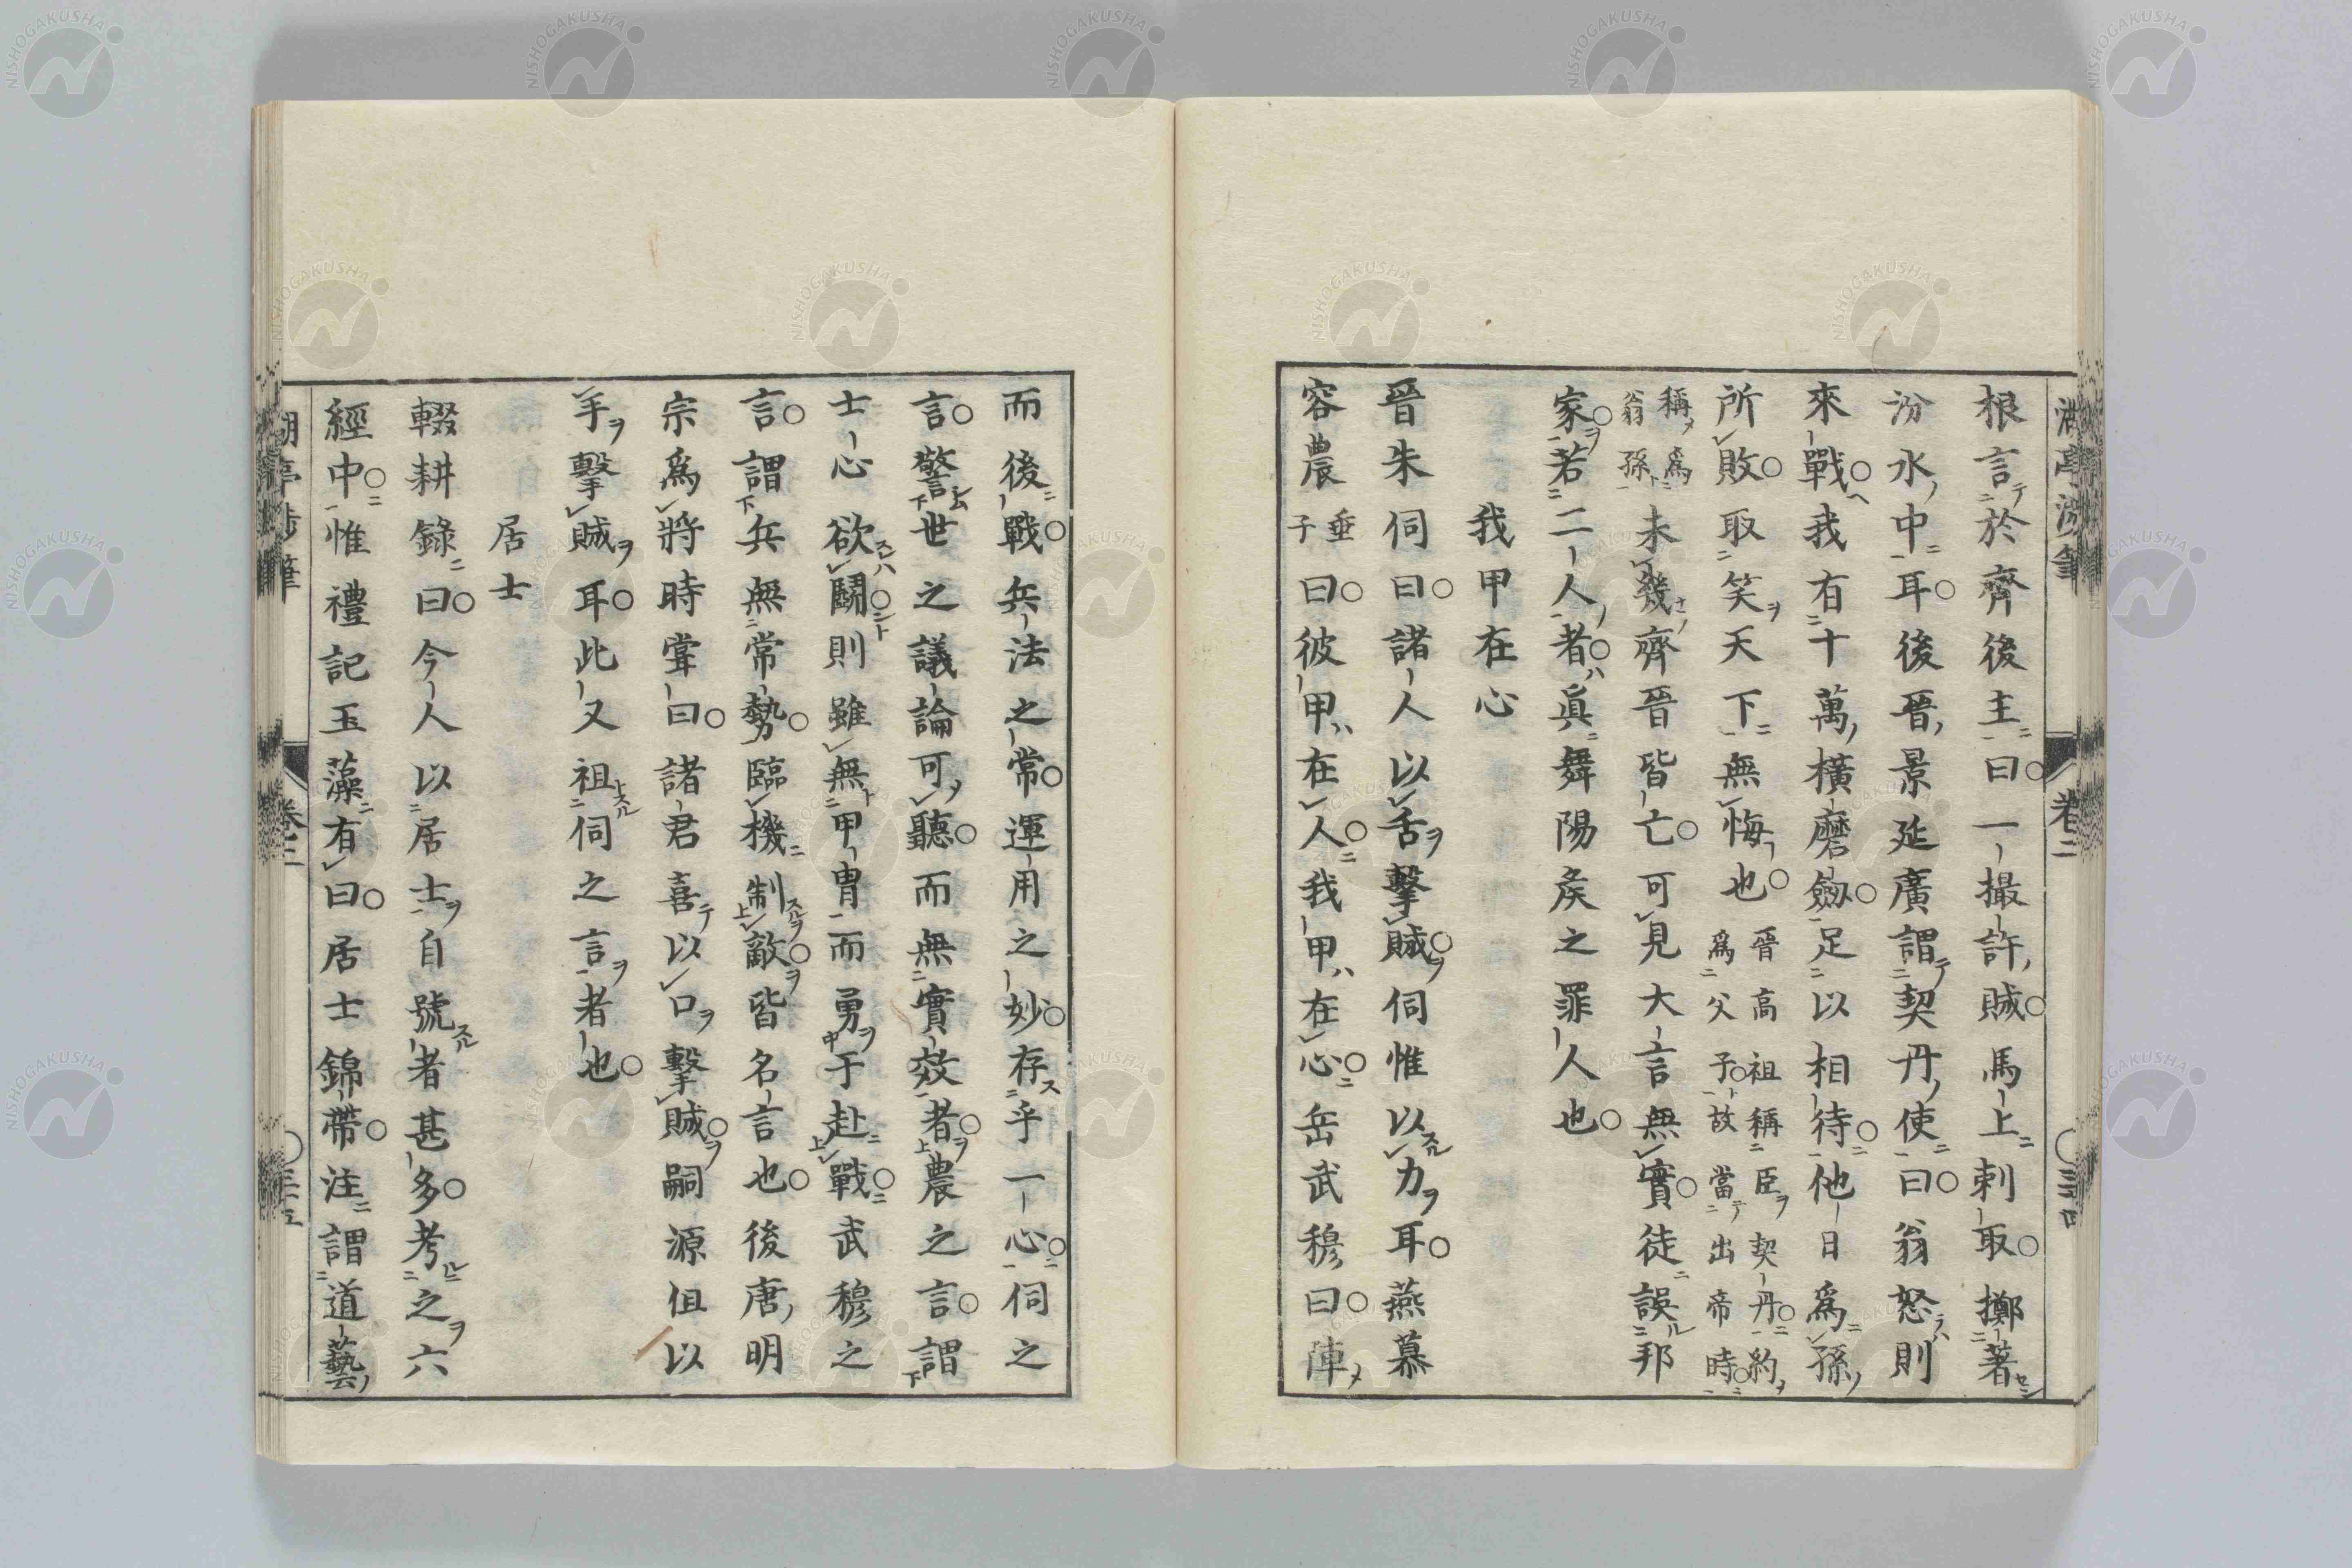 根言於齊後主曰一撮許賊馬上刺取擲著
汾水中耳後晉景延廣謂契丹使曰翁怒則
來戰我有十萬橫磨劔足以相待他日爲孫
所敗取笑天下無悔也晉高祖稱臣契丹約
爲父子故當出帝時
稱爲
翁孫未幾齊晉皆亡可見大言無實徒誤邦
家若二人者眞舞陽矦之罪人也
我甲在心
晉朱伺曰諸人以舌擊賊伺惟以力耳燕慕
容農垂子曰彼甲在人我甲在心岳武穆曰陣
卷二
而後戰兵法之常運用之妙存乎一心伺之
言警世之議論可聽而無實效者農之言謂
士心欲鬭則雖無甲冑而勇于赴戰武穆之
言謂兵無常勢臨機制敵皆名言也後唐明
宗爲將時甞曰諸君喜以口擊賊嗣源但以
手擊賊耳此又祖伺之言者也
居士
輟耕錄曰今人以居士自號者甚多考之六
經中惟禮記玉藻有曰居士錦帶注謂道藝
NISHOGAKUSHA